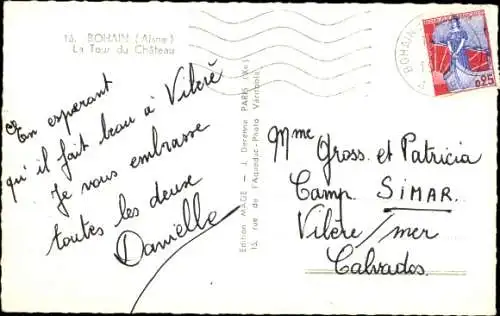 15. BOHAIN (Aisne)
La Tour du Château
En esperant
qu'il fait beau à Vilere
Je vous embrasse
toutes les deux
Danielle
Edition MAGE — J. Derenne PARIS (Xe)
15, rue de l'Aqueduc-Photo Véritable
BOHAIN
0,25
Mme Gross. et Patricia
Camp SIMAR.
Vilere / mer
Calvados.